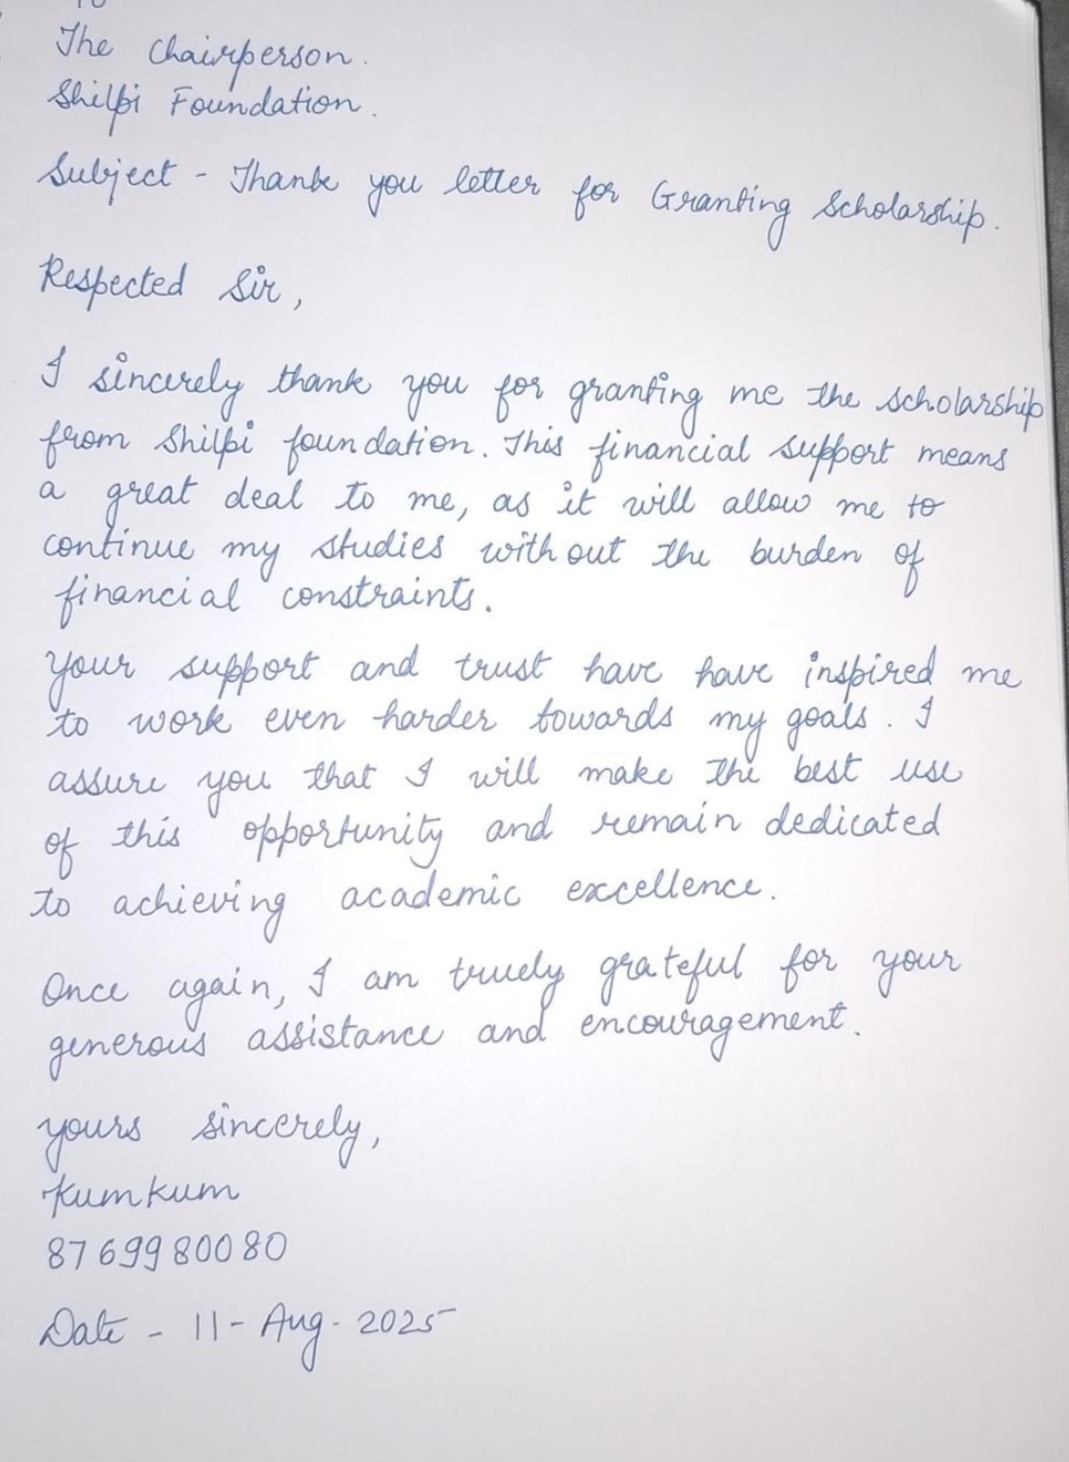 To
The Chairperson.
Shilpi Foundation.
Subject - Thank you letter for Granting Scholarship.
Respected Sir,
I sincerely thank you for granting me the scholarship
from Shilpi foundation. This financial support means
a great deal to me, as it will allow me to
continue my studies without the burden of
financial constraints.
Your support and trust have have inspired me
to work even harder towards my goals. I
assure you that I will make the best use
of this opportunity and remain dedicated
to achieving academic excellence.
Once again, I am truely grateful for your
generous assistance and encouragement.
yours sincerely,
Kumkum
8769980080
Date - 11-Aug-2025